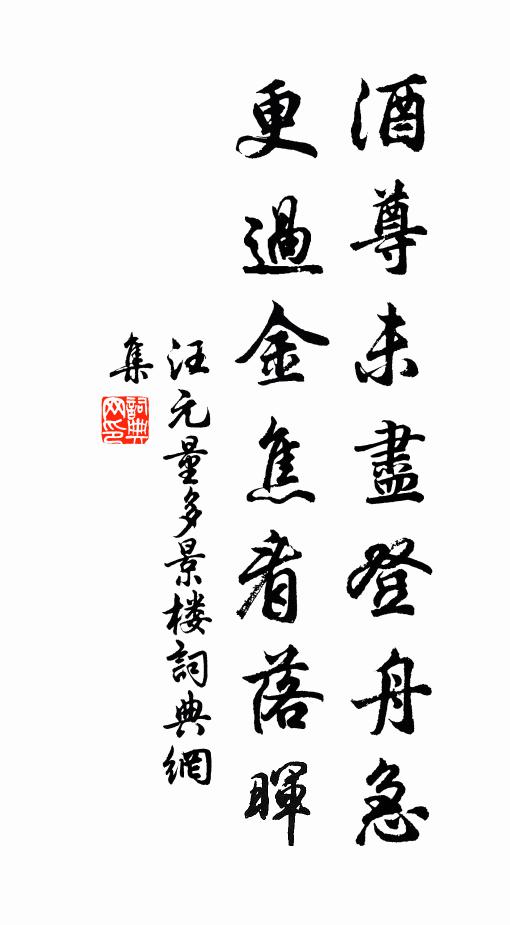 酒尊未盡登舟急
更過金焦看落暉
汪元量多景楼詞典網
集
詞典
网印